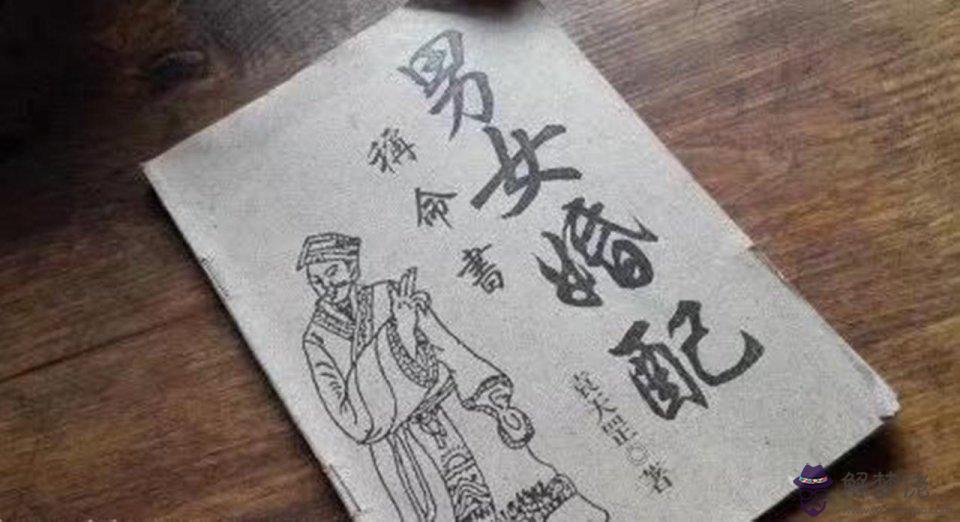 男女婚配
稱命書
袁天罡〇著
解梦佬